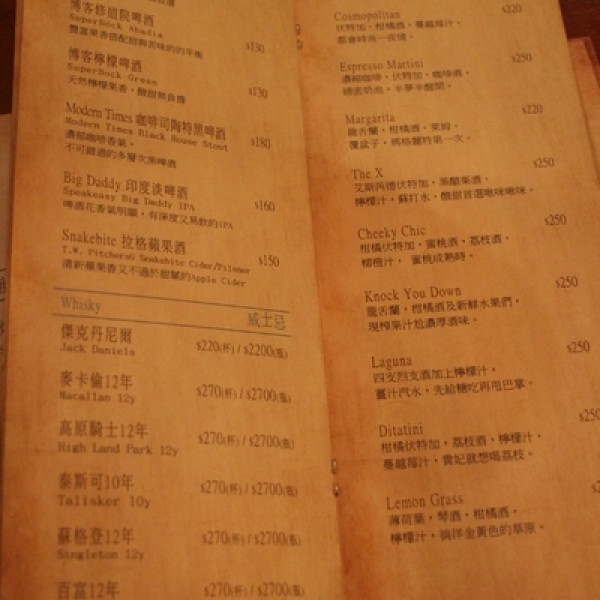 博客修道院啤酒
SuperBock Abadia
豐富果香搭配甜與苦味的的平衡
$130
博客檸檬啤酒
SuperBock Green
天然檸檬果香，酸甜無負擔
$130
Modern Times 咖啡司陶特黑啤酒
Modern Times Black House Stout
濃縮咖啡香氣，
不可錯過的多層次黑啤酒
$180
Big Daddy 印度淡啤酒
Speakeasy Big Daddy IPA
啤酒花香氣明顯，有深度又易飲的IPA
$160
Snakebite 拉格蘋果酒
T.W. Pitchers Snakebite Cider/Pilsner
清新蘋果香又不過於甜膩的Apple Cider
$150
Whisky 威士忌
傑克丹尼爾
Jack Daniels
$220(杯) / $2200(瓶)
麥卡倫12年
Macallan 12y
$270(杯) / $2700(瓶)
高原騎士12年
High Land Park 12y
$270(杯) / $2700(瓶)
泰斯可10年
Talisker 10y
$270(杯) / $2700(瓶)
蘇格登12年
Singleton 12y
$270(杯) / $2700(瓶)
百富12年
$270(杯) / $2700(瓶)
Cosmopolitan
$220
伏特加，柑橘酒，蔓越莓汁，
都會時尚一夜情。
Espresso Martini
$250
濃縮咖啡，伏特加，咖啡酒，
綿密奶泡，半夢半醒間。
Margarita
$220
龍舌蘭，柑橘酒，萊姆，
覆盆子，瑪格麗特第一次。
The X
$250
艾斯芮德伏特加，黑醋栗酒，
檸檬汁，蘇打水，酸甜首選啾咪啾咪。
Cheeky Chic
$250
柑橘伏特加，蜜桃酒，荔枝酒，
柳橙汁，蜜桃成熟時。
Knock You Down
$250
龍舌蘭，柑橘酒及新鮮水果們，
現榨果汁尬濃厚酒味。
Laguna
$250
四支烈支酒加上檸檬汁，
薑汁汽水，先給糖吃再甩巴掌。
Ditatini
柑橘伏特加，荔枝酒，檸檬汁，
蔓越莓汁，貴妃就想喝荔枝。
Lemon Grass
薄荷葉，琴酒，柑橘酒，
檸檬汁，徜徉金黃色的草原。